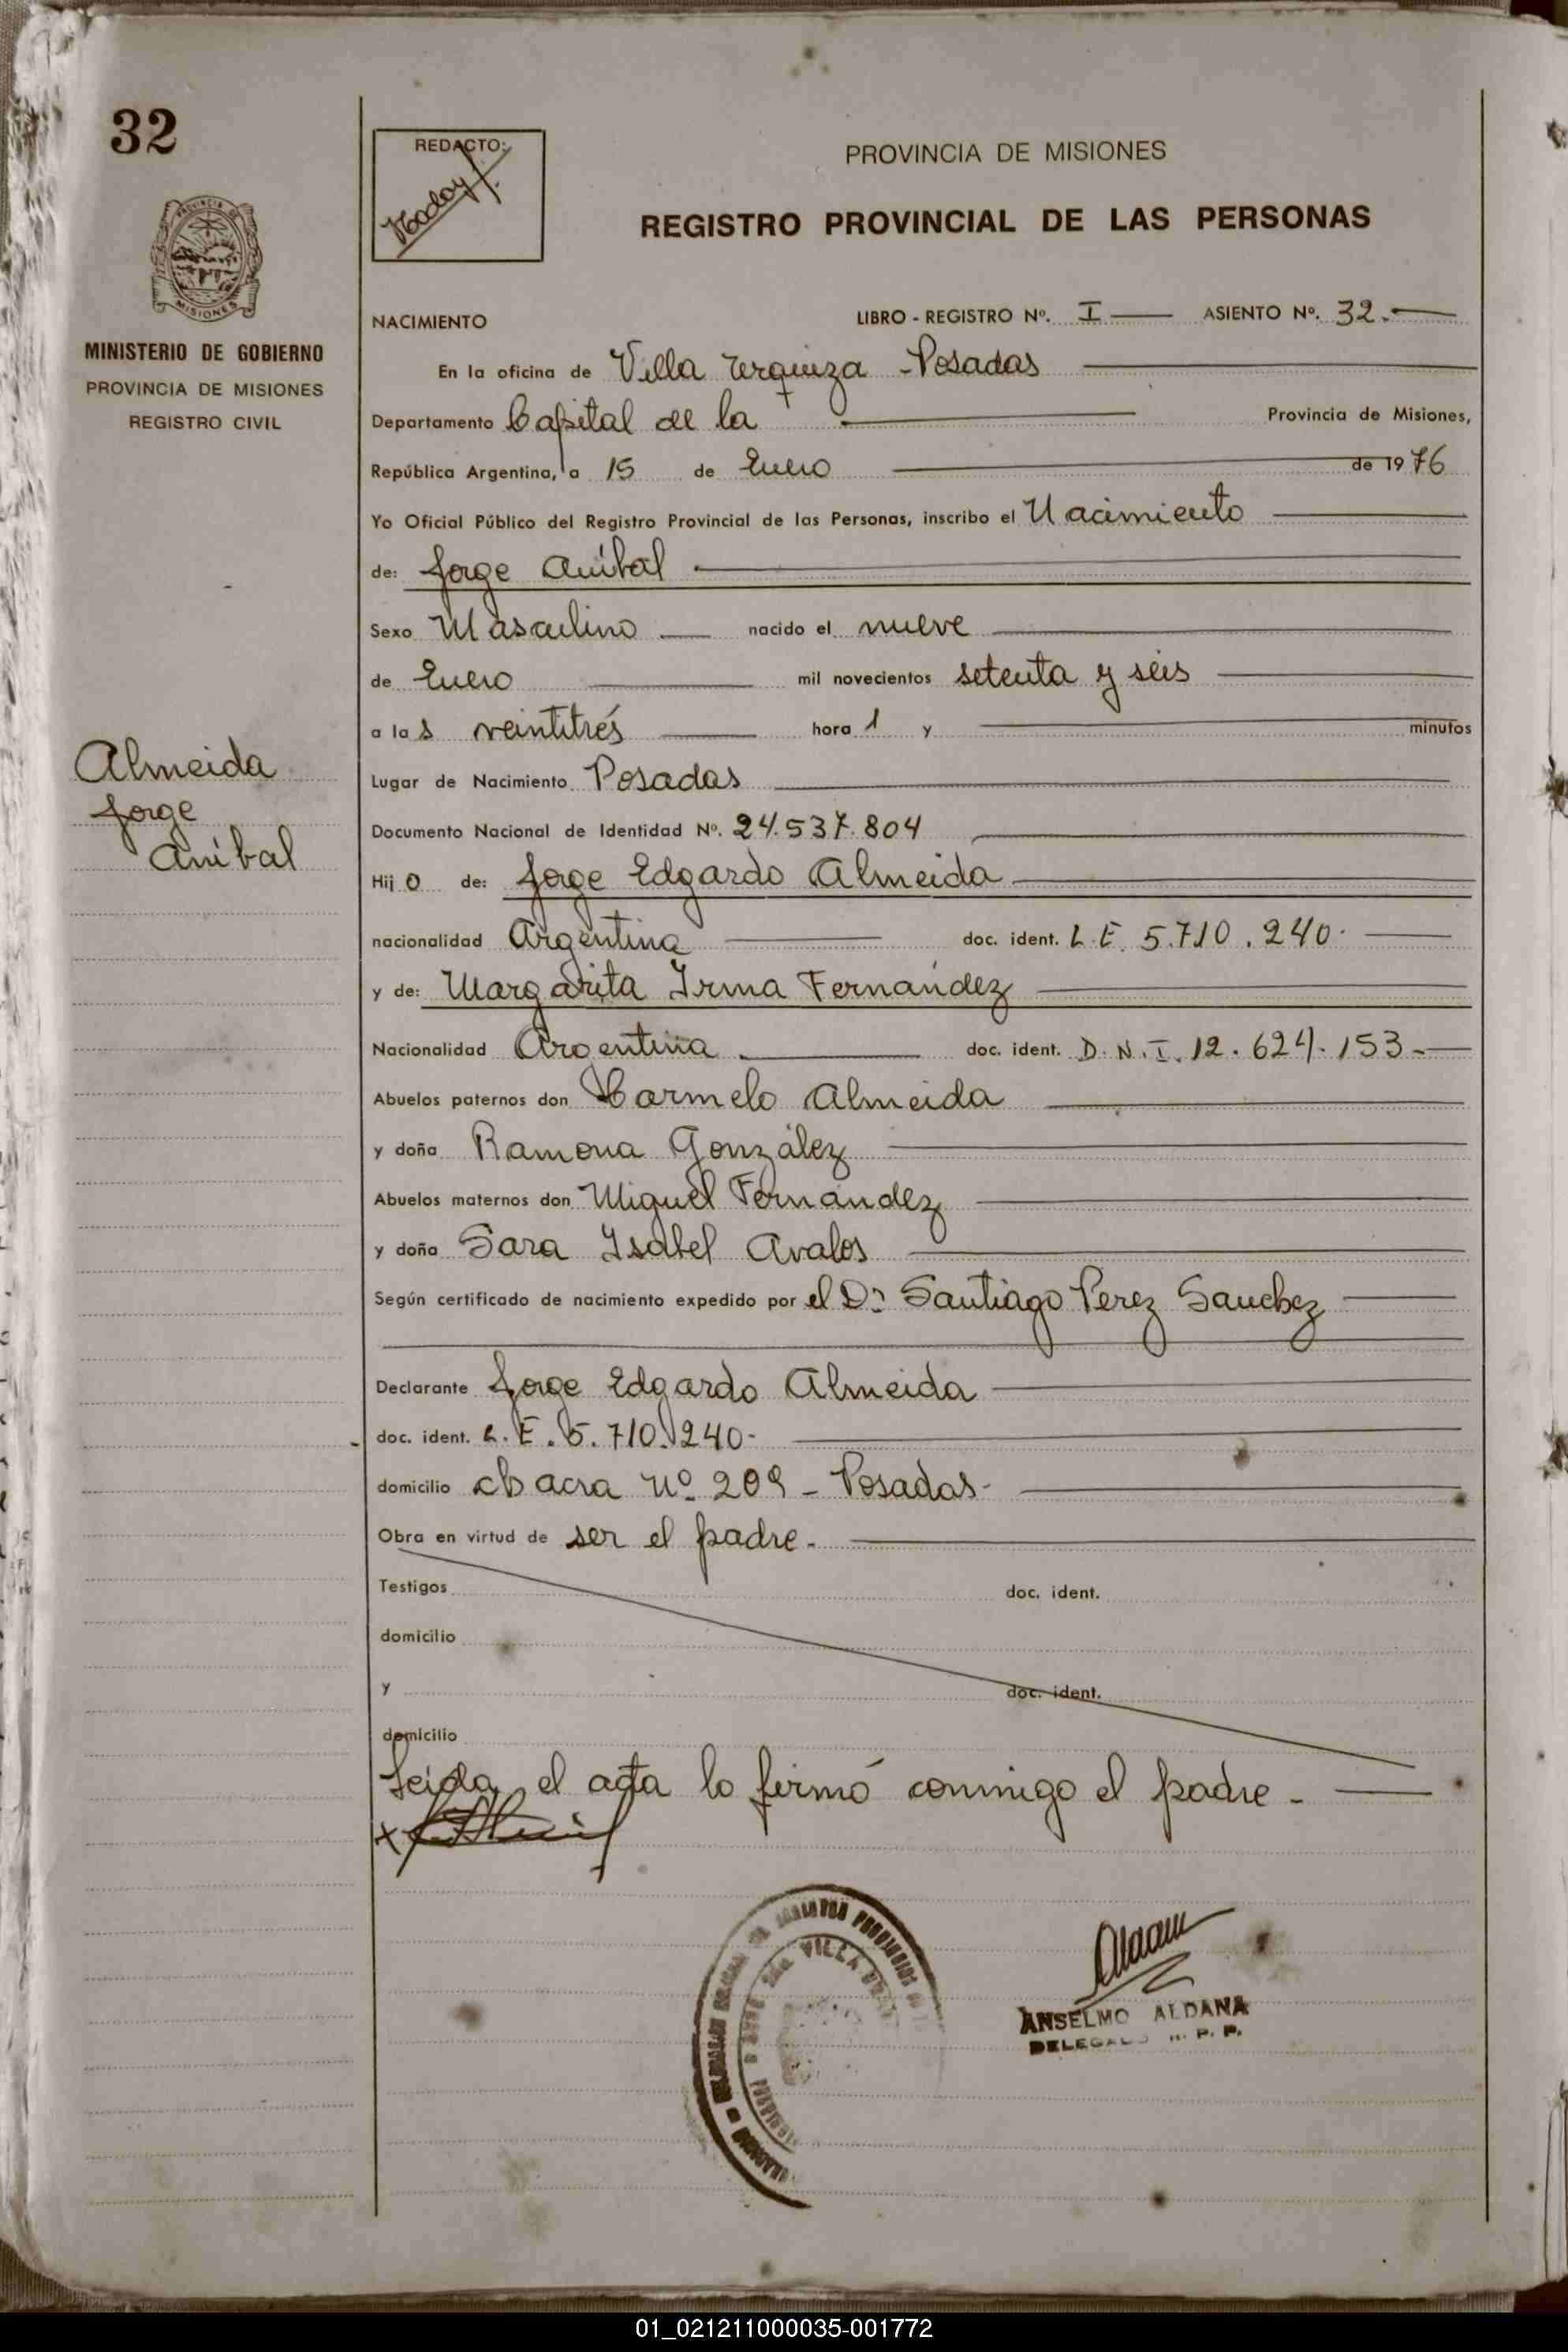 32
REDACTO:
PROVINCIA DE MISIONES
REGISTRO PROVINCIAL DE LAS PERSONAS
PROVINCIA DE
MISIONES
MINISTERIO DE GOBIERNO
PROVINCIA DE MISIONES
REGISTRO CIVIL
NACIMIENTO LIBRO - REGISTRO Nº. I ASIENTO Nº. 32.
En la oficina de Villa Urquiza - Posadas
Departamento Capital de la Provincia de Misiones,
República Argentina, a 15 de Enero de 1976
Yo Oficial Público del Registro Provincial de las Personas, inscribo el Nacimiento
de: Jorge Aníbal
Sexo Masculino nacido el nueve
de Enero mil novecientos setenta y seis
a las veintitrés hora 1 y minutos
Almeida
Jorge
Aníbal
Lugar de Nacimiento Posadas
Documento Nacional de Identidad Nº. 24.537.804
Hijo de: Jorge Edgardo Almeida
nacionalidad Argentina doc. ident. L.E. 5.710.240.
y de: Margarita Irma Fernández
Nacionalidad Argentina doc. ident. D.N.I. 12.624.153-
Abuelos paternos don Carmelo Almeida
y doña Ramona González
Abuelos maternos don Miguel Fernández
y doña Sara Isabel Avalos
Según certificado de nacimiento expedido por el Dr Santiago Perez Sanchez
Declarante Jorge Edgardo Almeida
doc. ident. L.E. 5.710.240-
domicilio chacra Nº 209 - Posadas-
Obra en virtud de ser el padre.
Testigos doc. ident.
domicilio
y doc. ident.
domicilio
Leida el acta lo firmó conmigo el padre -
VILLA
ANSELMO ALDANA
DELEGADO R. P. P.
01_021211000035-001772